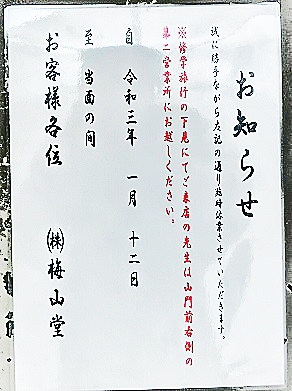 お知らせ
誠に勝手ながら左記の通り臨時休業させていただきます。
※修学旅行の下見にてご来店の先生は山門前右側の
第二営業所にお越しください。
自 令和三年 一月 十二日
至 当面の間
お客様各位 ㈱梅山堂